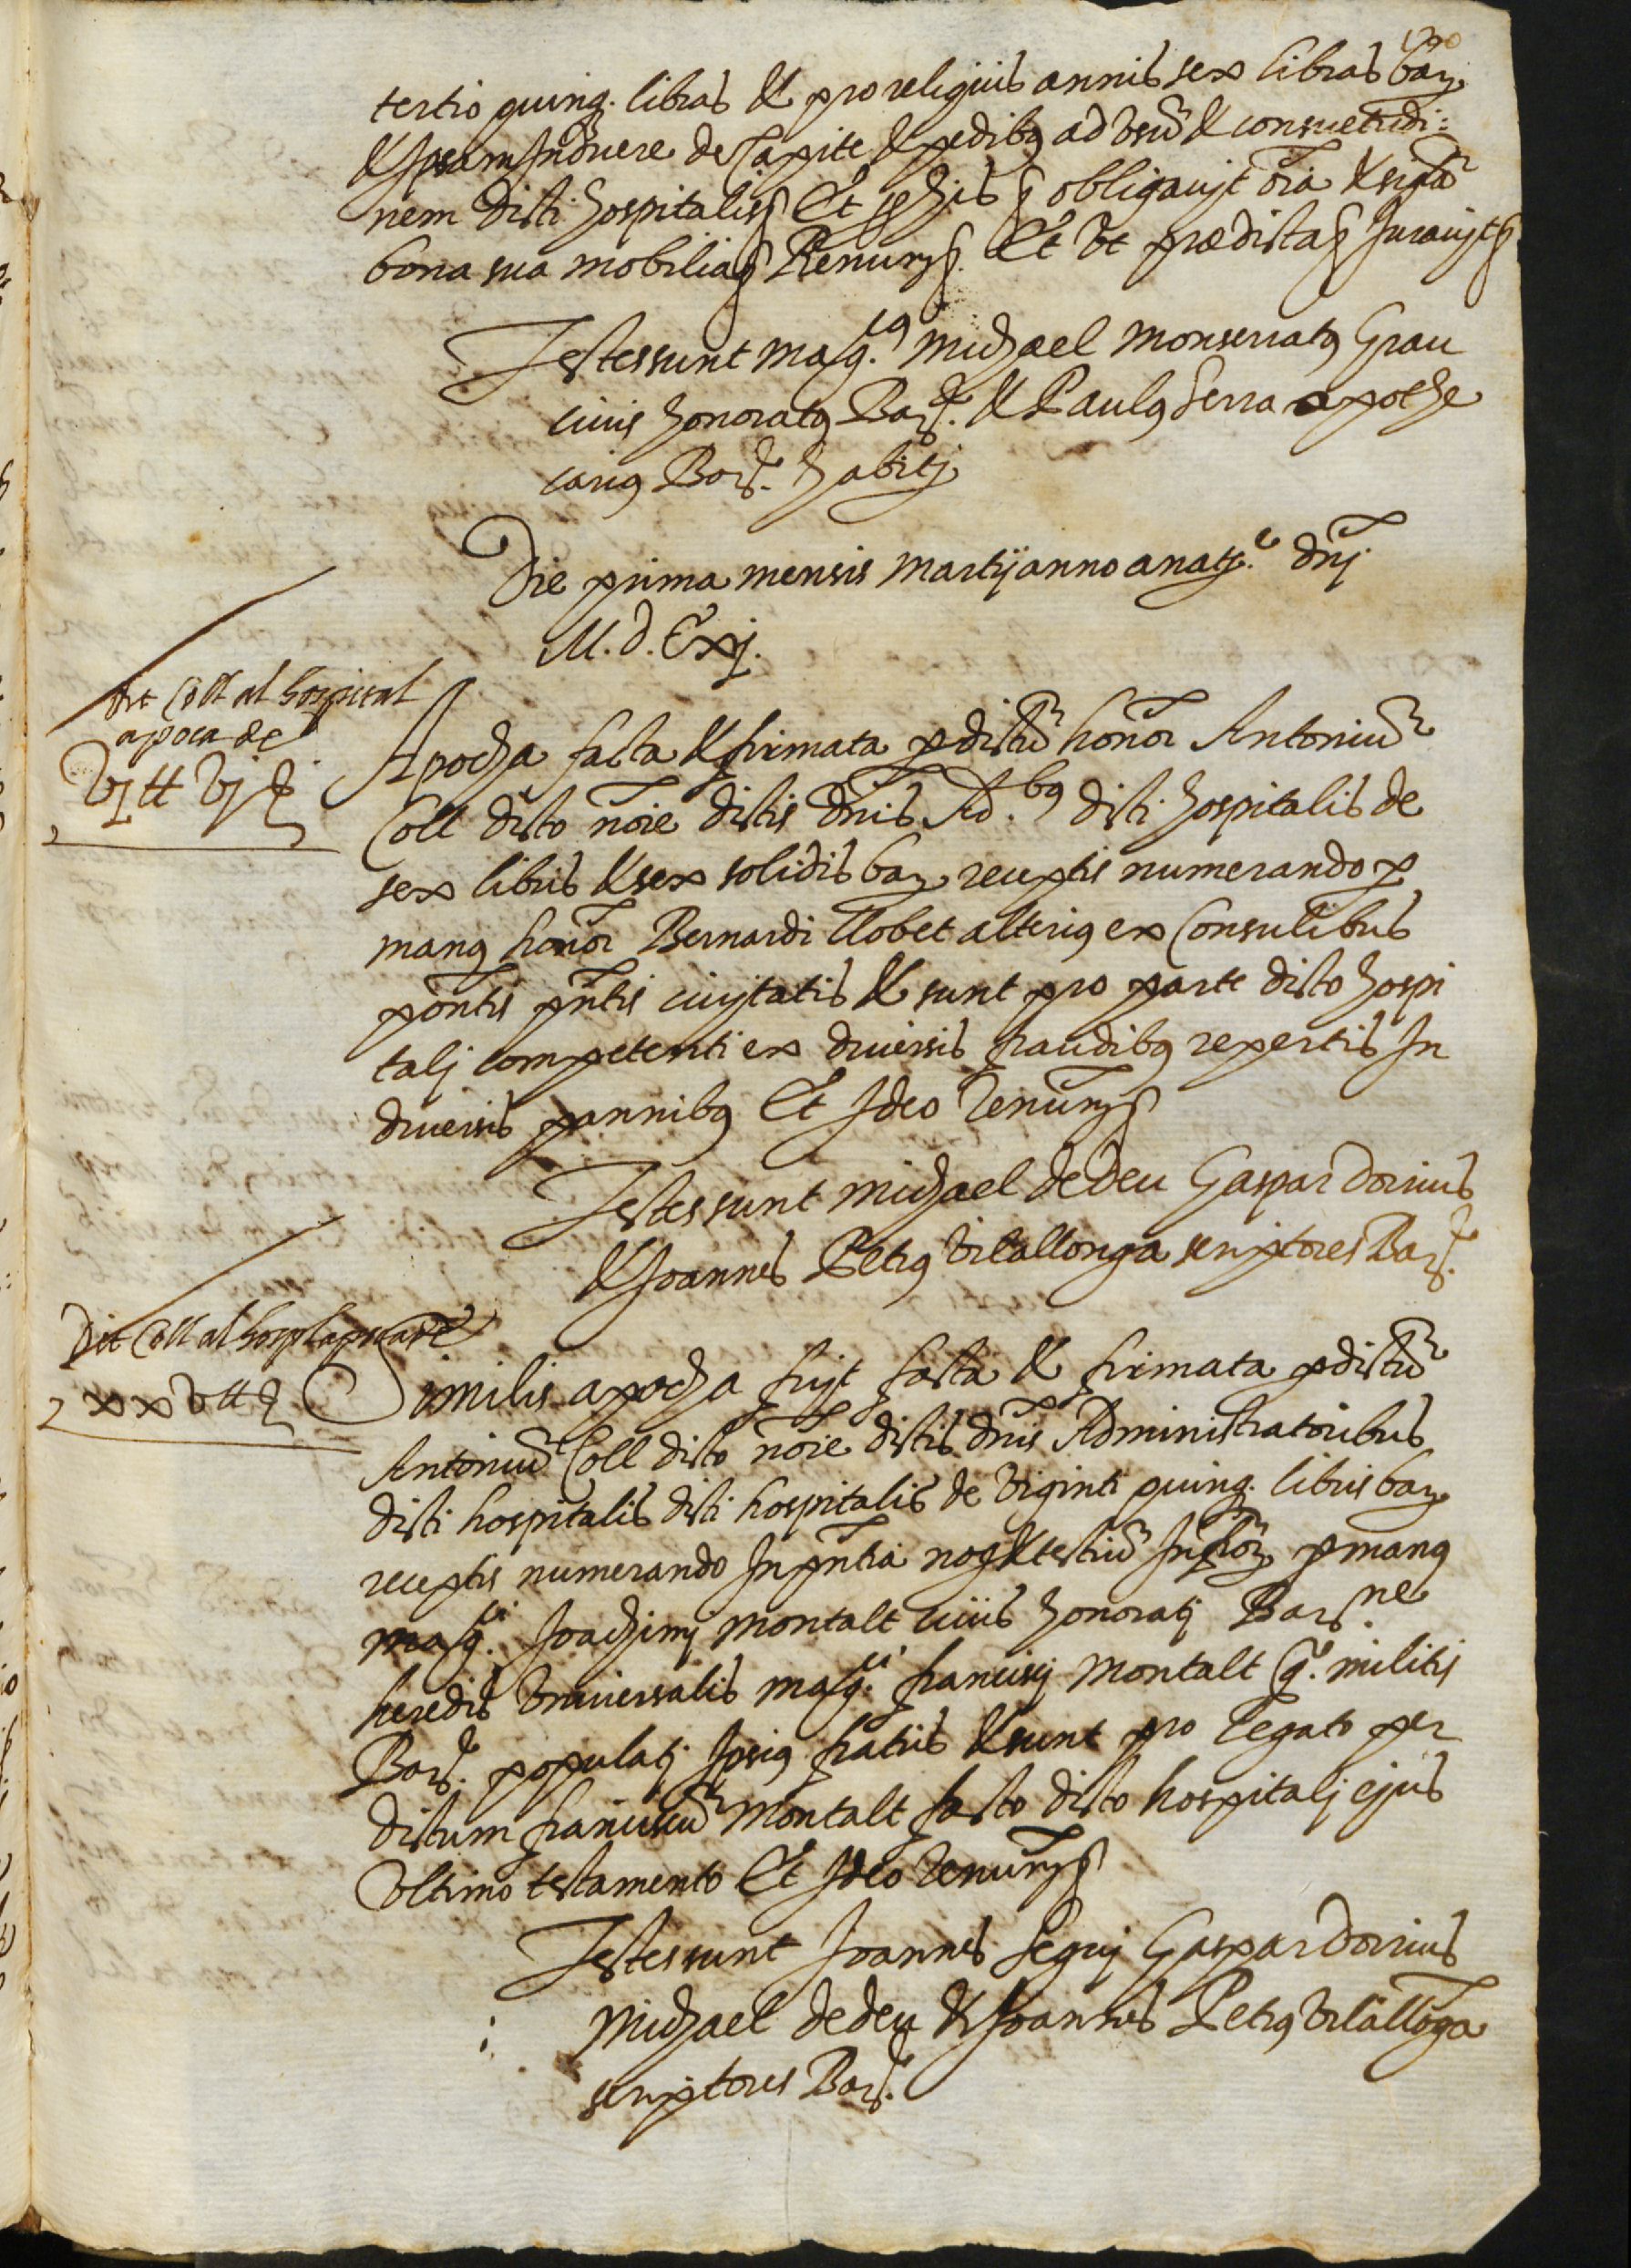 tertio quinq. libras & pro reliquis annis sex libras bar.
& ipsam induere de capite & pedibꝯ ad vsū & consuetudi:
nem dicti hospitalis Et pro his obligauit oīa & singla
bona sua mobilia Renuns. Et vt prædicta Jurauit
Testes sunt mag.cꝯ Michael Monserratꝯ Grau
ciuis honoratꝯ Bare. & Paulꝯ Serra apothe
cariꝯ Barse. habitj
Die prima mensis Martij anno a nate. dnj
M.d.Cxj.
Dit Coll al hospital
apoca de
vj ll vj s
Apocha facta & firmata p dictū honor Antoniū
Coll dicto noīe dictis dnīs Ad.bꝯ dicti hospitalis de
sex libris & sex solidis bar. receptis numerando p
manꝯ honor Bernardi Llobet alteriꝯ ex Consulibus
pontis pn̄tis ciujtatis & sunt pro parte dicto hospi
talj competenti ex diuersis fraudibꝯ repertis In
diuersis pannibꝯ Et Ideo Renuns
Testes sunt Michael dedeu Gaspar Dorius
& Joannes Petrꝯ Vilallonga scriptores Barse.
Dit Coll al hospl apoca de
xxv ll s
Similis apocha fujt facta & firmata p dictū
Antoniū Coll dicto noīe dictis dnīs Administratoribus
dicti hospitalis dicti hospitalis de viginti quinq. libris bar.
receptis numerando In pn̄tia noꝫ & testiū Infror. p manꝯ
mag.ci Joachimj Montalt ciuis honoratj Bars.ne
heredis vniuersalis mag.ci francisci Montalt q.o militis
Barse. populatj Ipsiꝯ fratris & sunt pro legato per
dictum franciscū Montalt facto dicto hospitalj ejus
vltimo testamento Et Ideo Renuns
Testes sunt Joannes Seguj Gaspar Dorius
Michael dedeu & Joannes Petrꝯ Vilallōga
scriptores Barse.